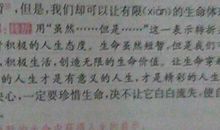 ,但是,我们却可以让有限(xiàn)的生命体
用“虽然……但是……”这一表示转折
积极的人生态度。生命虽然短暂,但是我们
积极生活,创造无限的生命价值。让生命穿越
的人生才是有意义的人生,才是精彩的人生
心,一定要珍惜生命,决不让它白白流失,使自